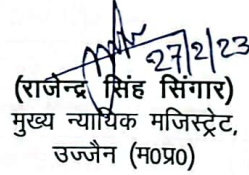 27/2/23
(राजेन्द्र सिंह सिंगार)
मुख्य न्यायिक मजिस्ट्रेट,
उज्जैन (म०प्र०)